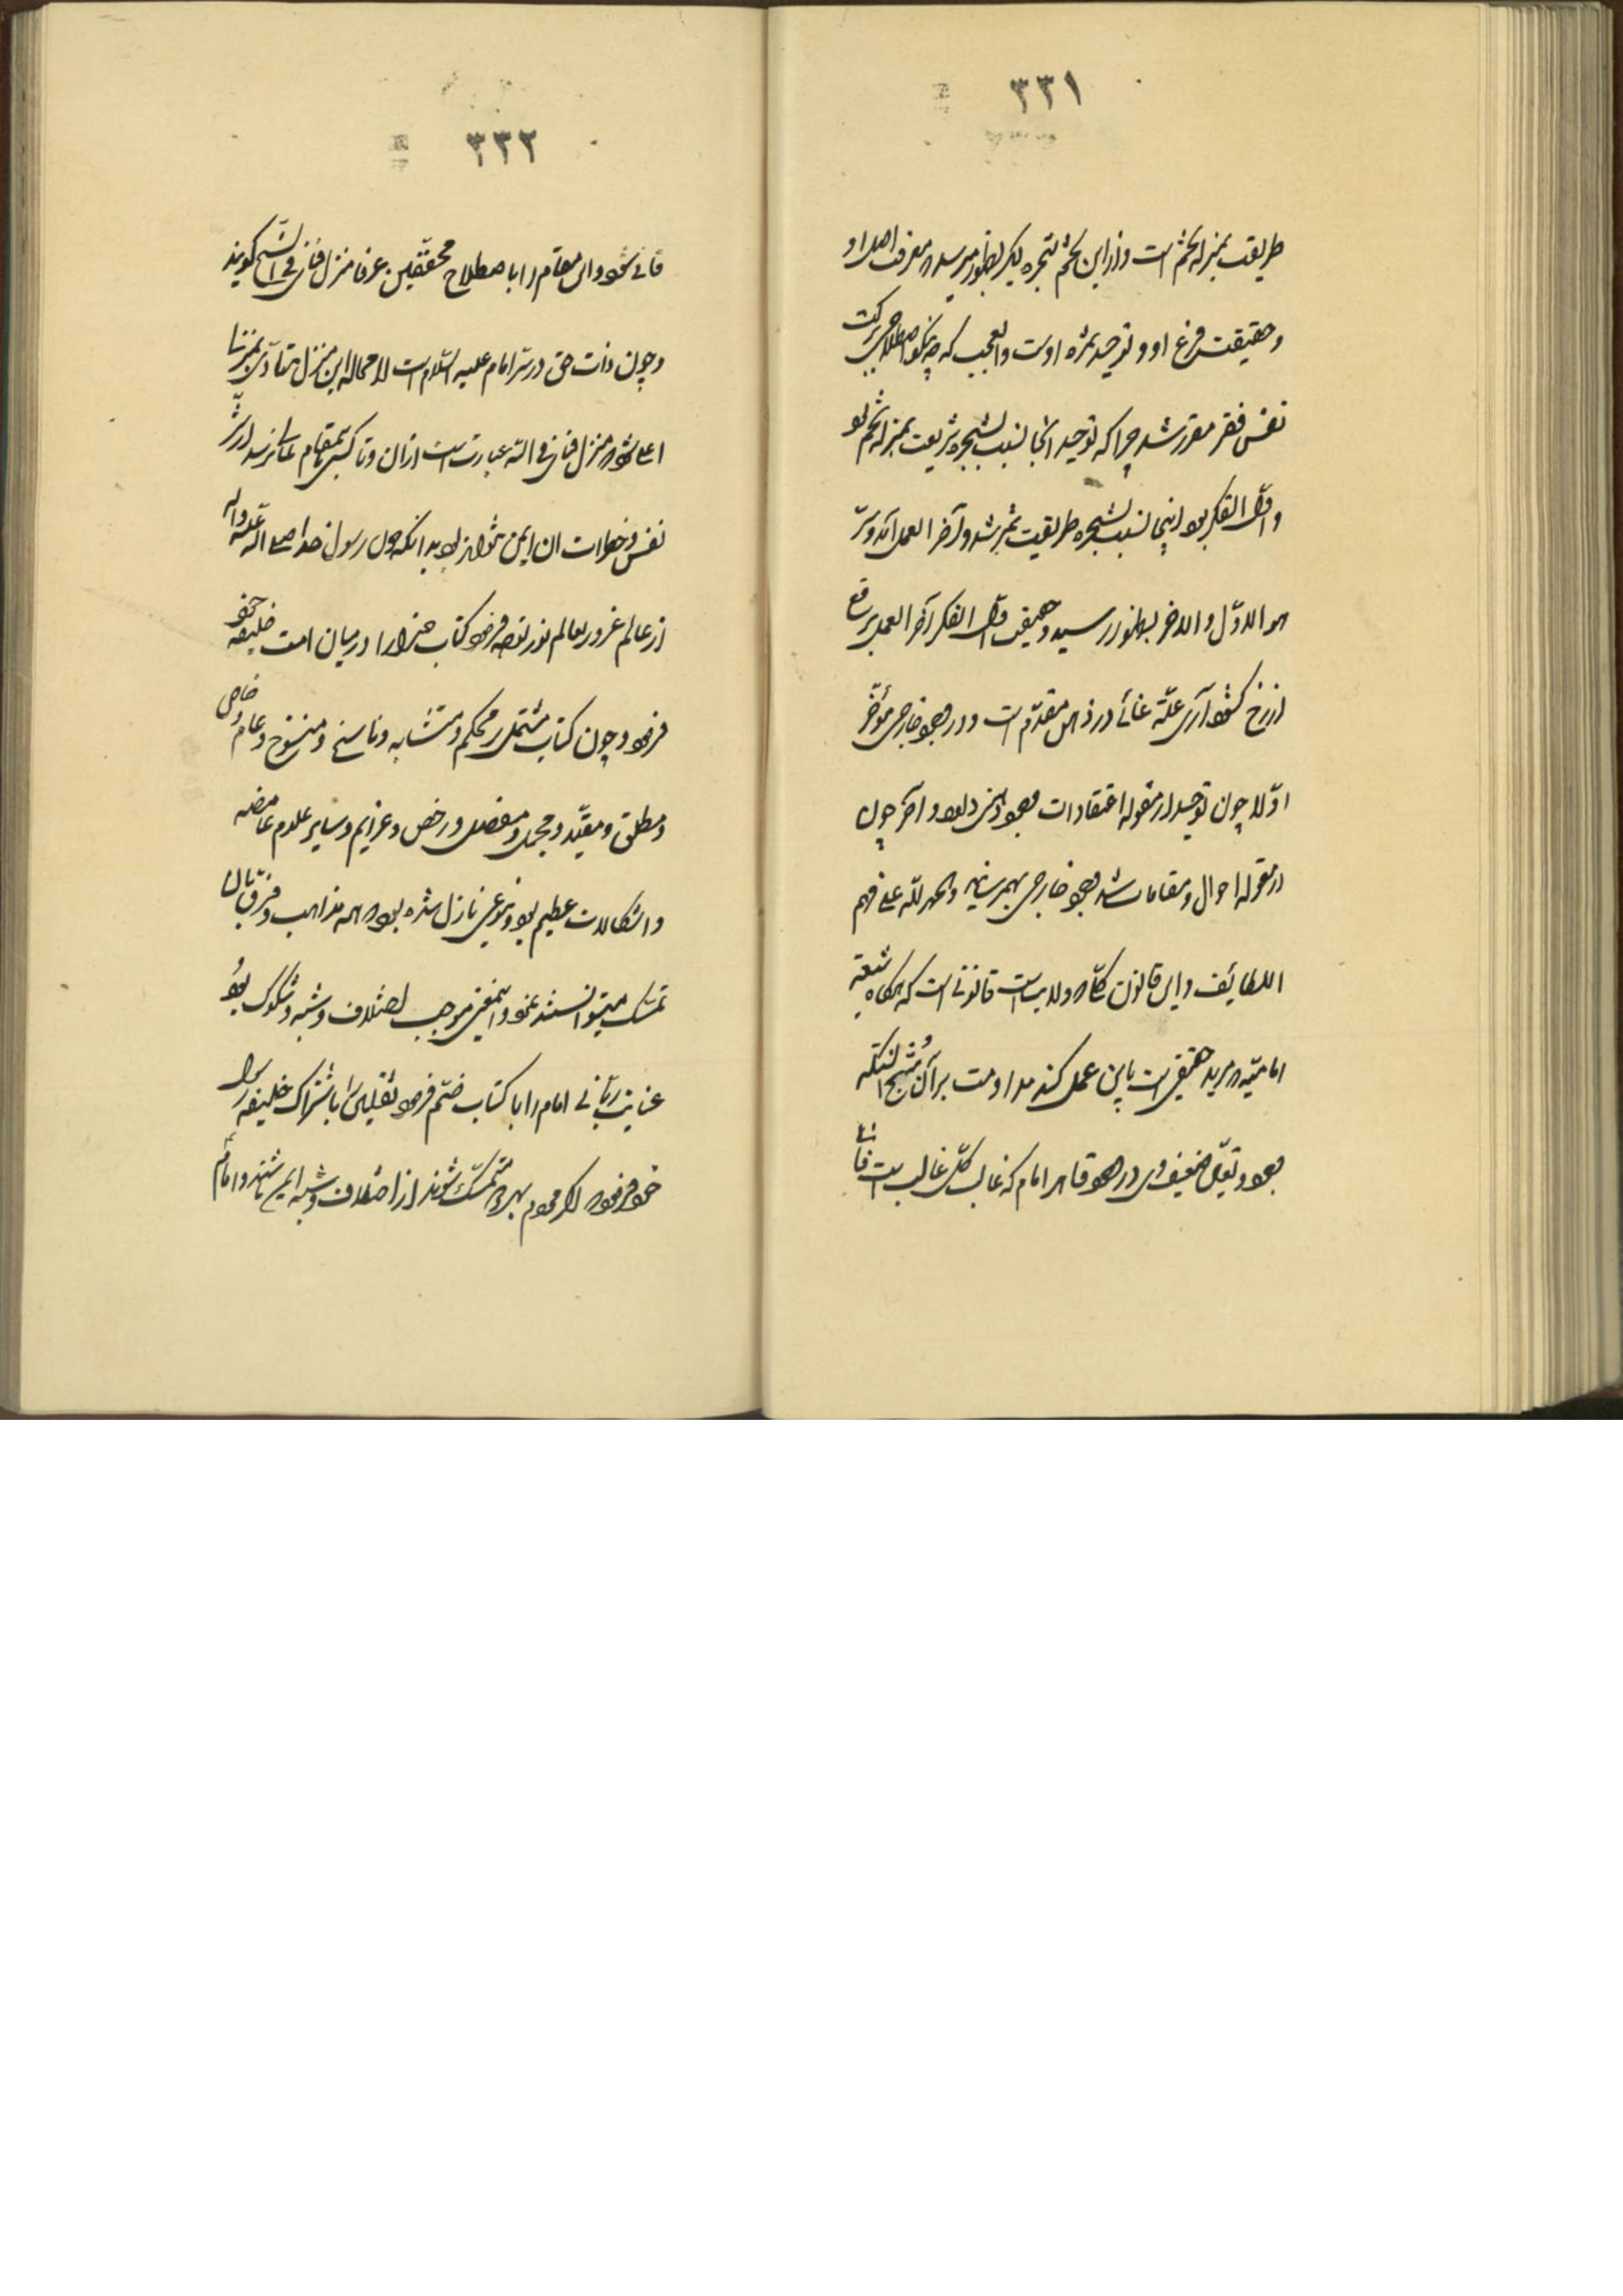 ۳۳۱
طریقت بمنزله تخم است و از این تخم شجره یکر بظهور میرسد که معرفت اصل او
و حقیقت فرع او و توحید ثمره اوست و العجب که چنانکه اصطلاح برکت
نفس فقر مقرر شد چرا که توحید آنجا نسبت بشجره شریعت بمنزله تخم بود
و اول الفکر بود اینجا نسبت بشجره طریقت ثمر شد و آخر العمل آمد و سرّ
هو الاوّل و الاخر بظهور رسید و حقیقت اوّل الفکر آخر العمل برقع
از رخ کشود آری علّة غائی در ذهن مقدّم است و در وجود خارجی مؤخّر
اوّلا چون توحید از مقوله اعتقادات بود وجود ذهنی داشت و آخر چون
از مقوله احوال و مقامات شد وجود خارجی بهم رسانید و الحمد للّه علی فهم
اللطایف و این قانون کلاه ولایت است قانونی است که هرگاه شیعه
امامیّه که مرید حقیقی است باین عمل کند مداومت بر آن مُنتج النتیجه
بود و تعیّن ضعیف وی در وجود قاهر امام که غالب کلّ غالب است فانی
۳۳۲
فانی شود و این مقام را با صطلاح محققین عرفا منزل فنا فی الشیخ گویند
و چون ذات حق در سرّ امام علیه السّلام است لا محاله این منزل متأدّی بمنزل
اعلی شود که منزل فنا فی اللّه عبارت است از آن و تا کسی بمقام فنا نرسد از شرّ
نفس و خطرات آن ایمن نتواند بود بدانکه چون رسول خدا صلی الله علیه و آله
از عالم غرور بعالم نور نقل فرمود کتاب خدا را در میان امت خلیفه خود
فرمود و چون کتاب مشتمل بر محکم و متشابه و ناسخ و منسوخ و عام و خاص
و مطلق و مقیّد و مجمل و مفصل و رخص و عزایم و سایر علوم غامضه
و اشکالات عظیم بود و بنوعی نازل شده بود که همه مذاهب و فرق بآن
تمسّک میتوانستند نمود و این معنی موجب اختلاف و شبه و شکوک بود
عنایت ربّانی امام را با کتاب ضمّ فرمود ثقلین را باشتراک خلیفه رسول
خود فرمود که اگر مردم بهر دو متمسّک شوند از اختلاف و شبه ایمن باشند و امام